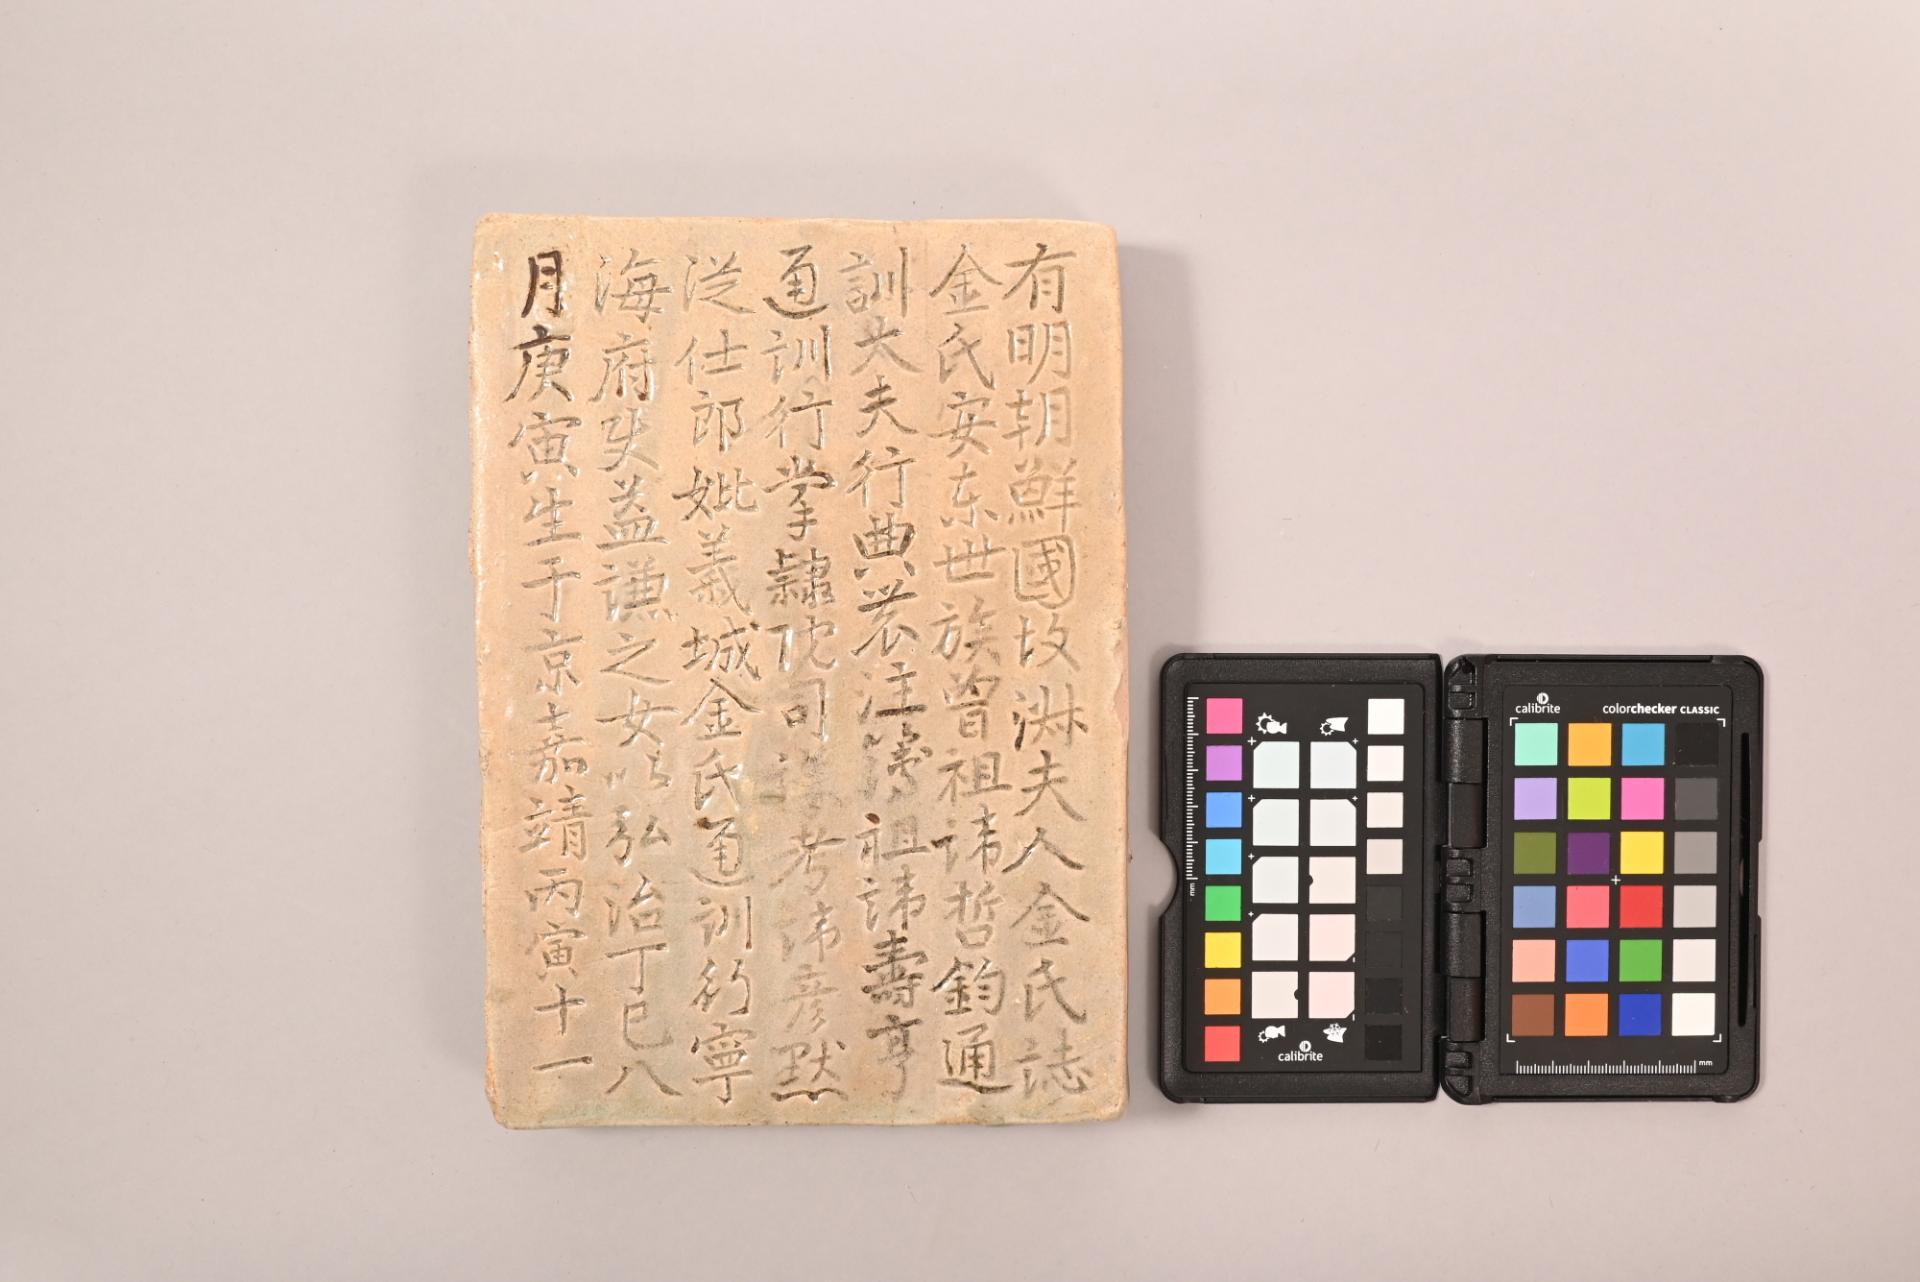 有明朝鮮國故淑夫人金氏誌
金氏安东世族曾祖諱哲鈞通
訓大夫行典农注簿祖諱壽亨
通訓行掌隸院司議考諱彦默
從仕郎妣義城金氏通訓行寧
海府使益謙之女以弘治丁巳八
月庚寅生于京嘉靖丙寅十一
calibrite
mm
calibrite
colorchecker CLASSIC
mm